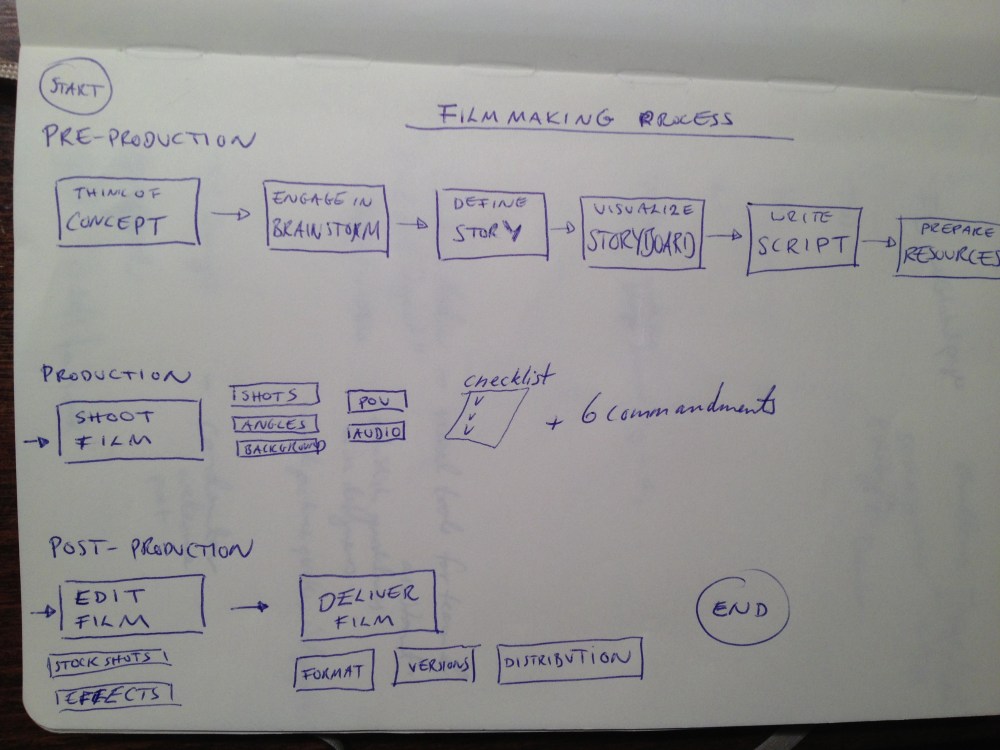 START
FILMMAKING PROCESS
PRE-PRODUCTION
THINK OF
CONCEPT
ENGAGE IN
BRAINSTORM
DEFINE
STORY
VISUALIZE
STORYBOARD
WRITE
SCRIPT
PREPARE
RESOURCES
PRODUCTION
SHOOT
FILM
SHOTS
ANGLES
BACKGROUND
POV
AUDIO
checklist
+ 6 commandments
POST-PRODUCTION
EDIT
FILM
STOCK SHOTS
EFFECTS
DELIVER
FILM
FORMAT
VERSIONS
DISTRIBUTION
END